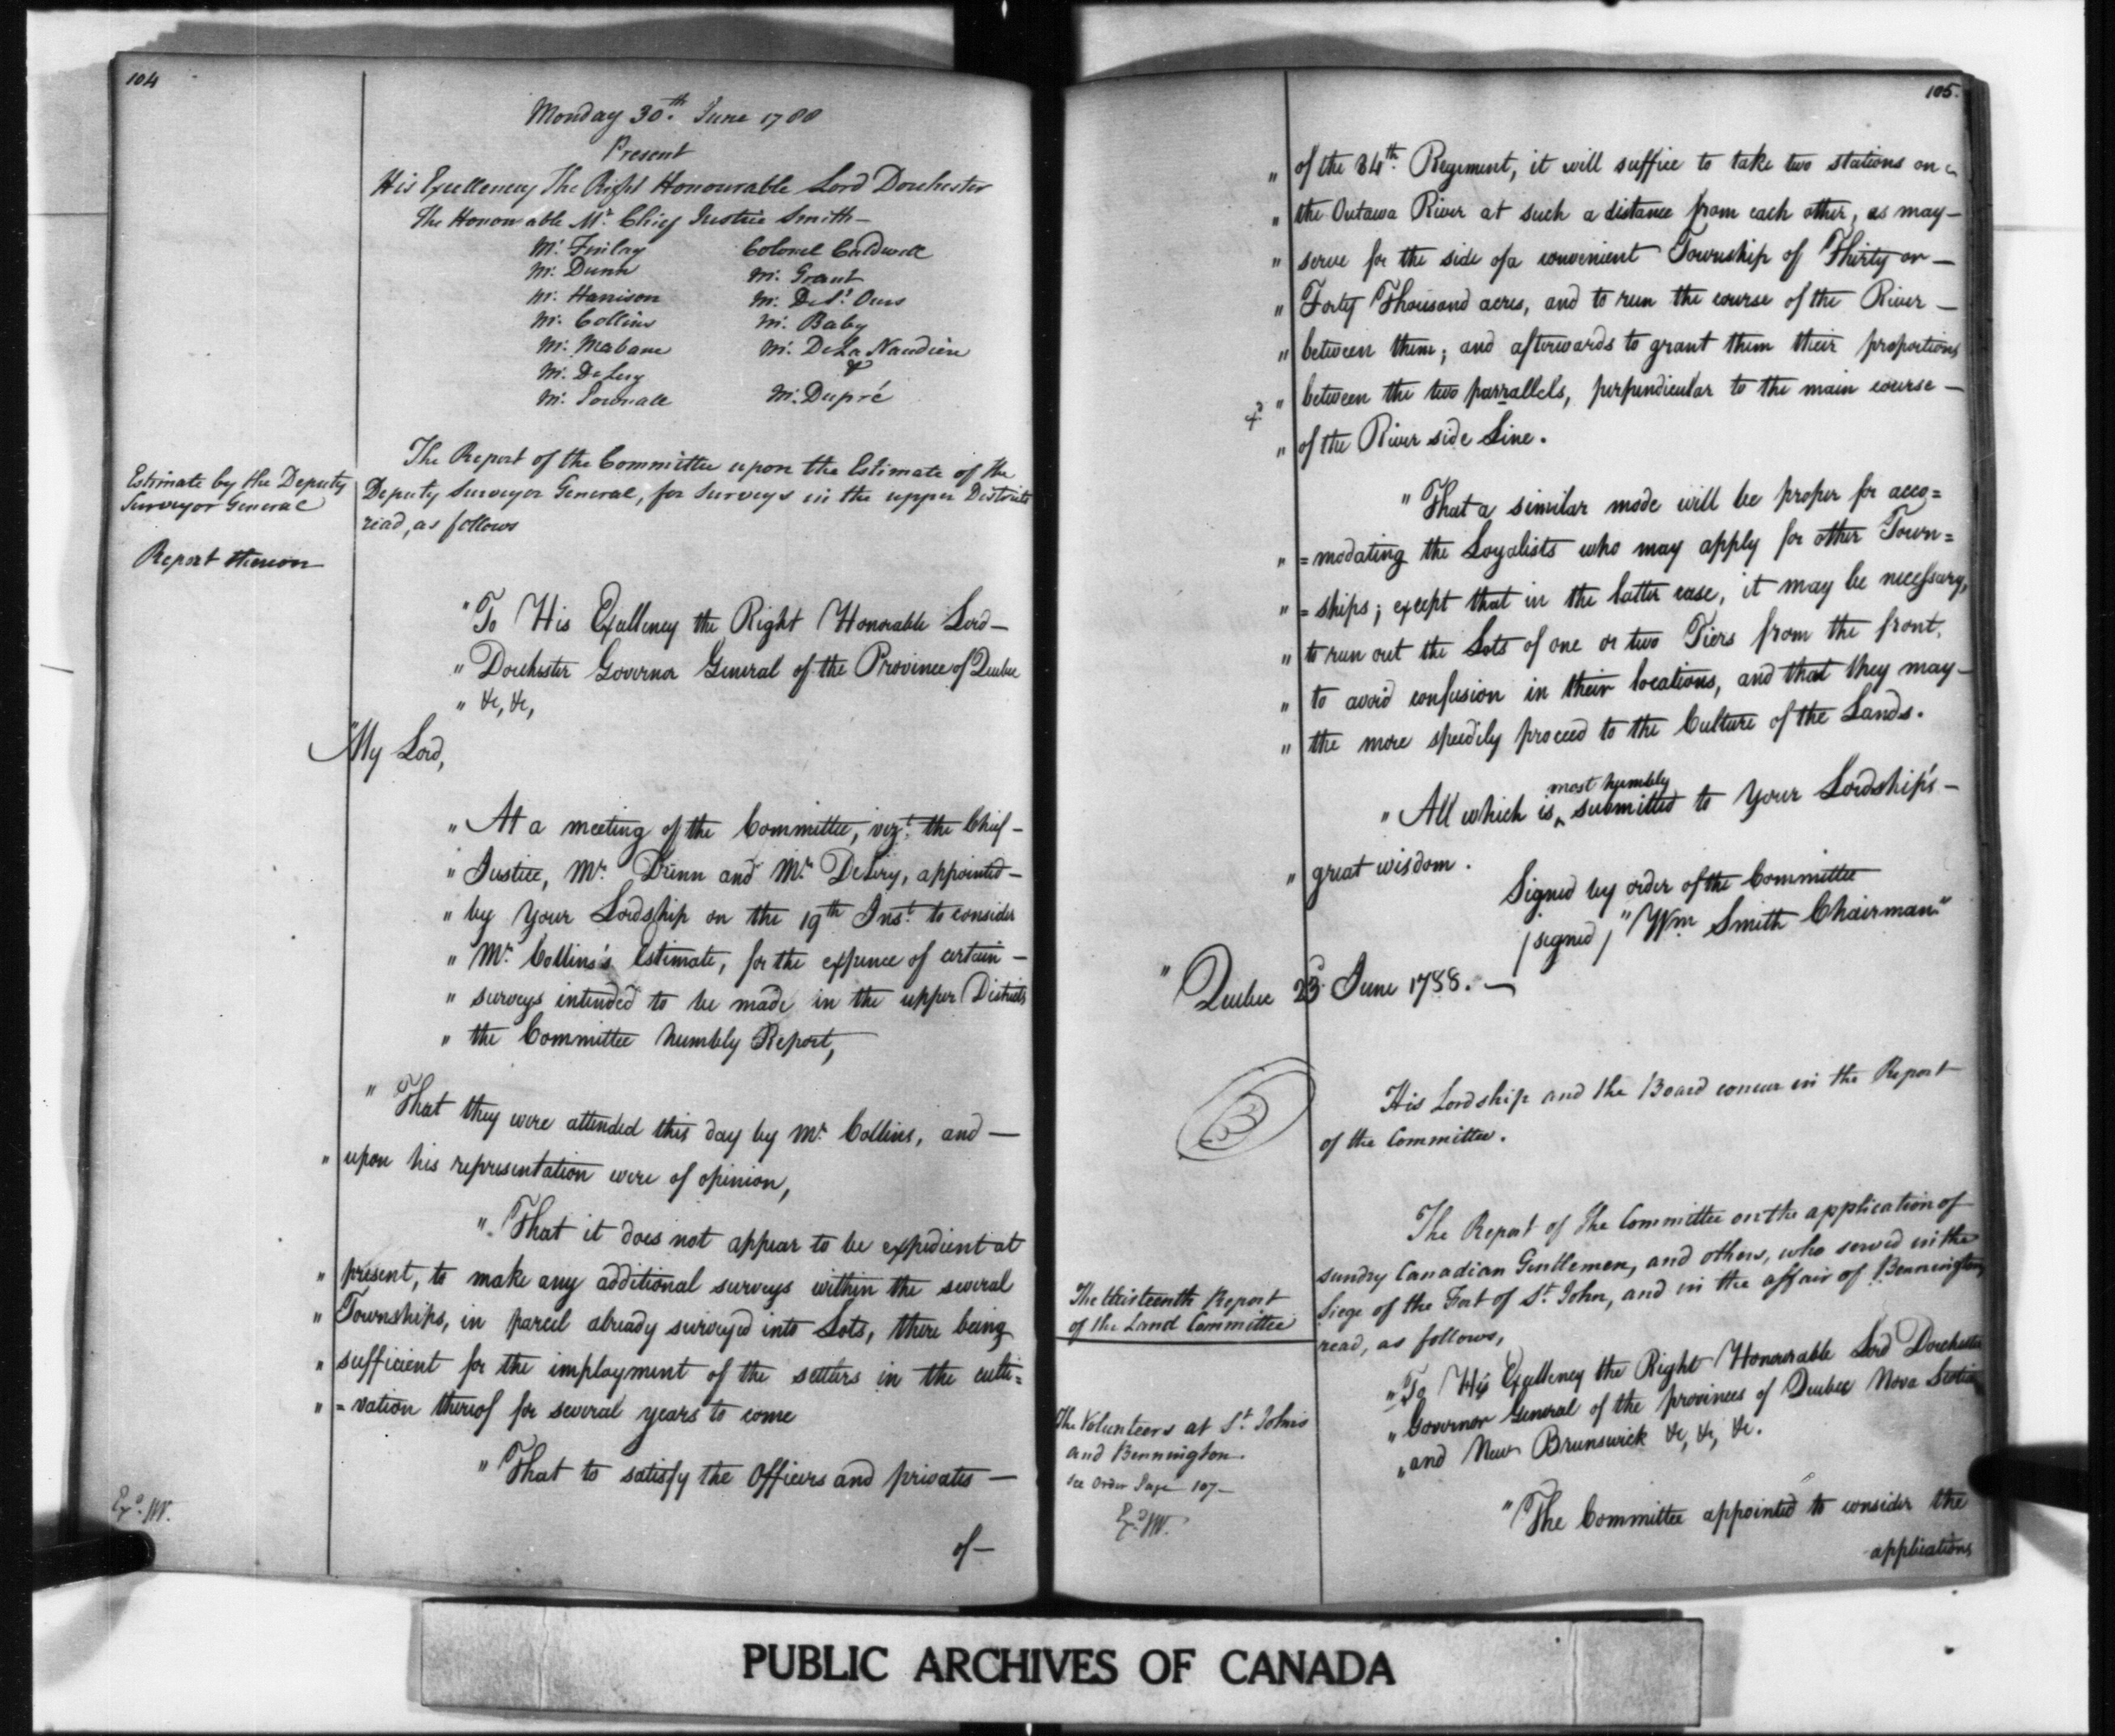 104
Monday 30.th June 1788
Present
His Excellency The Right Honourable Lord Dorchester
The Honorable Mr. Chief Justice Smith —
Mr. Finlay Colonel Caldwell
Mr. Dunn Mr. Grant
Mr. Harrison Mr. De St. Ours
Mr. Collins Mr. Baby
Mr. Mabane Mr. De La Naudiere
Mr. DeLery &
Mr. Pownall Mr. Dupré
Estimate by the Deputy
Surveyor General
Report thereon
The Report of the Committee upon the Estimate of the
Deputy Surveyor General, for Surveys in the upper Districts
read, as follows
"To His Excellency the Right Honorable Lord —
" Dorchester Governor General of the Province of Quebec
" &c, &c,
"My Lord,
" At a meeting of the Committee, vizt. the Chief —
" Justice, Mr. Dunn and Mr. DeLery, appointed —
" by Your Lordship on the 19th Inst. to consider
" Mr. Collins's Estimate, for the expence of certain —
" surveys intended to be made in the upper Districts
" the Committee humbly Report,
" That they were attended this day by Mr. Collins, and —
" upon his representation were of opinion,
" That it does not appear to be expedient at
" present, to make any additional surveys within the several
" Townships, in parcel already surveyed into Lots, there being
" sufficient for the imployment of the settlers in the culti=
" =vation thereof for several years to come
" That to satisfy the Officers and privates —
Exd. W.
of —
105.
" of the 84th. Regiment, it will suffice to take two stations on
" the Outawa River at such a distance from each other, as may —
" serve for the side of a convenient Township of Thirty or —
" Forty Thousand acres, and to run the course of the River —
" between them; and afterwards to grant them their proportions
" between the two parrallels, perpendicular to the main course —
" of the River side Line.
" That a similar mode will be proper for acco=
" =modating the Loyalists who may apply for other Town=
" =ships; except that in the latter case, it may be necessary,
" to run out the Lots of one or two Tiers from the front,
" to avoid confusion in their locations, and that they may —
" the more speedily proceed to the Culture of the Lands.
most humbly
" All which is ‸ submitted to Your Lordship's —
" great wisdom.
Signed by order of the Committee
/signed/ "Wm Smith Chairman."
" Quebec 23d. June 1788. —
His Lordship and the Board concur in the Report
of the Committee.
The thirteenth Report
of the Land Committee
The Report of the Committee on the application of
sundry Canadian Gentlemen, and others, who served in the
Siege of the Fort of St. John, and in the affair of Bennington,
read, as follows,
The Volunteers at St. Johns
and Bennington.
see Order Page 107 —
Exd. W.
" To His Excellency the Right Honourable Lord Dorchester
" Governor General of the provinces of Quebec Nova Scotia
" and New Brunswick &c, &c, &c.
" The Committee appointed to consider the
applications
PUBLIC ARCHIVES OF CANADA